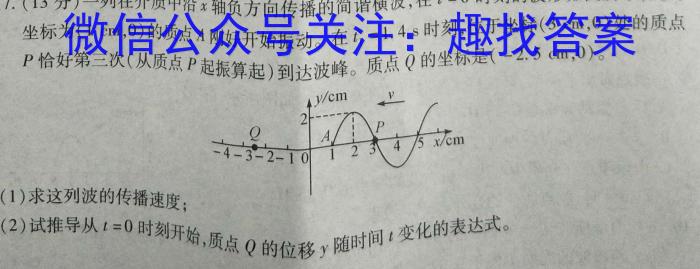 7. (13 分)一列在介质中沿 x 轴负方向传播的简谐横波,在 t=0 时刻的
微信公众号关注：趣找答案
坐标为 的质点 A 刚好开始振动 4 s 时刻 的质点
P 恰好第三次(从质点 P 起振算起)到达波峰。质点 Q 的坐标是(-2.5 cm,0)。
y/cm
v
2
Q
A
P
-4 -3 -2 -1 0 1 2 3 4 5 x/cm
(1)求这列波的传播速度;
(2)试推导从 t=0 时刻开始,质点 Q 的位移 y 随时间 t 变化的表达式。